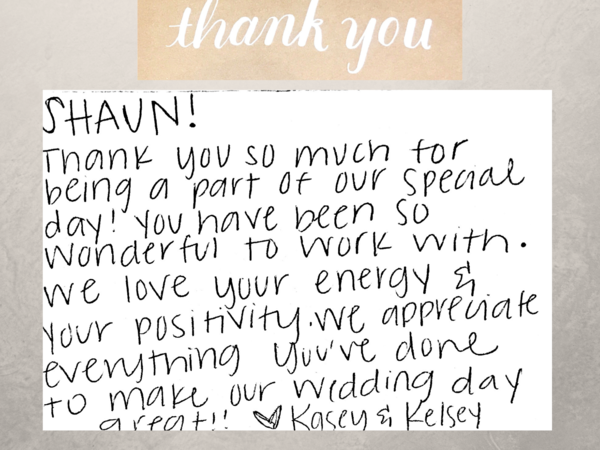 thank you
SHAUN!
Thank you so much for
being a part of our special
day! You have been so
wonderful to work with.
We love your energy &
your positivity. We appreciate
everything you've done
to make our wedding day
great!! ♡ Kasey & Kelsey